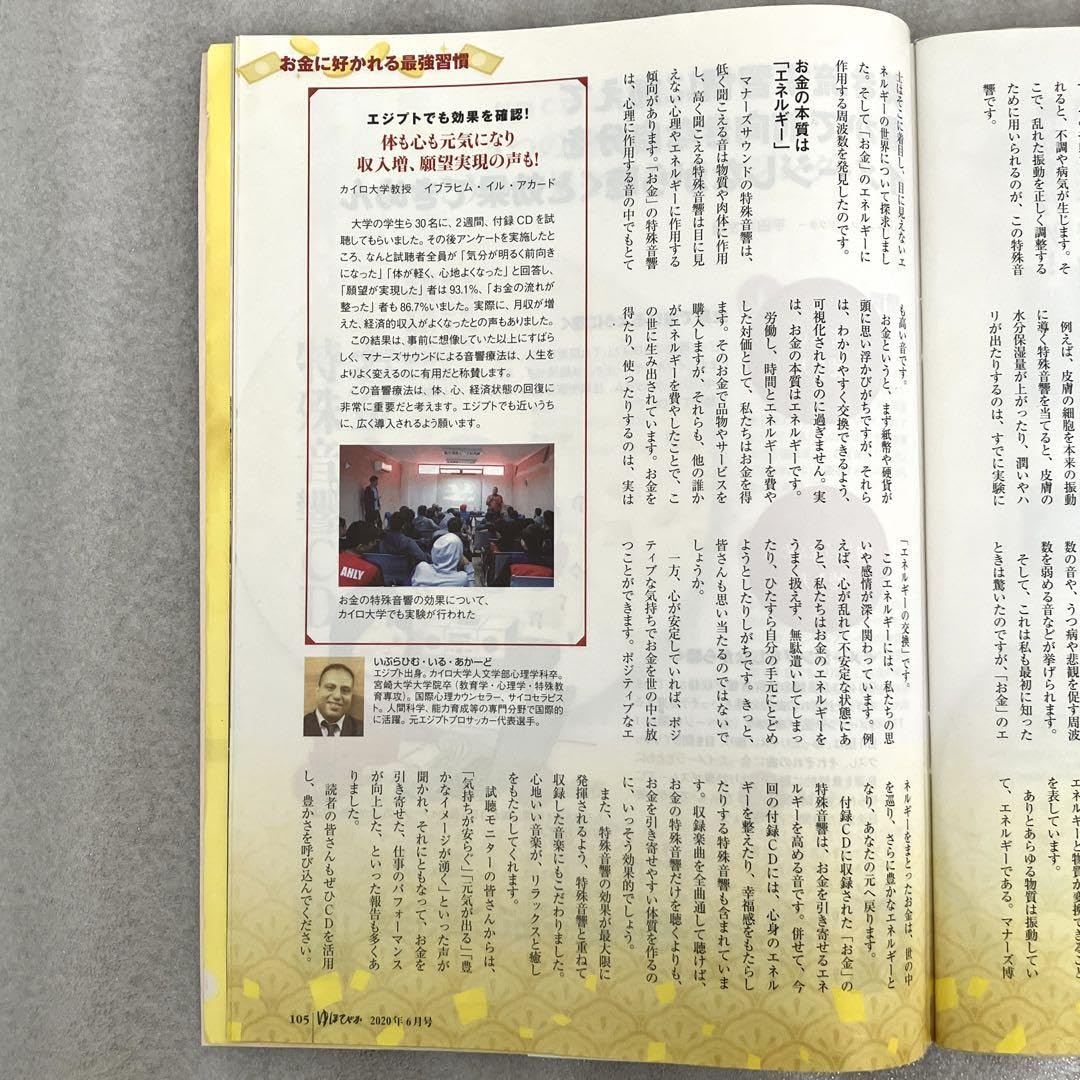 れると、不調や病気が生じます。そ
こで、乱れた振動を正しく調整する
ために用いられるのが、この特殊音
響です。
例えば、皮膚の細胞を本来の振動
に導く特殊音響を当てると、皮膚の
水分保湿量が上がったり、潤いやハ
リが出たりするのは、すでに実験に
数の音や、うつ病や悲観を司る周波
数を弱める音などが挙げられます。
そして、これは私も最初に知った
ときは驚いたのですが、「お金」のエ
を表しています。
ありとあらゆる物質は振動してい
て、エネルギーである。マナーズ博
お金に好かれる最強習慣
士はそこに着目し、目に見えないエ
ネルギーの世界について探求しまし
た。そして「お金」のエネルギーに
作用する周波数を発見したのです。
お金の本質は
「エネルギー」
マナーズサウンドの特殊音響は、
低く聞こえる音は物質や肉体に作用
し、高く聞こえる特殊音響は目に見
えない心理やエネルギーに作用する
傾向があります。「お金」の特殊音響
は、心理に作用する音の中でもとて
も高い音です。
お金というと、まず紙幣や硬貨が
頭に思い浮かびがちですが、それら
は、わかりやすく交換できるよう、
可視化されたものに過ぎません。実
は、お金の本質はエネルギーです。
労働し、時間とエネルギーを費や
した対価として、私たちはお金を得
ます。そのお金で品物やサービスを
購入しますが、それらも、他の誰か
がエネルギーを費やしたことで、こ
の世に生み出されています。お金を
得たり、使ったりするのは、実は
「エネルギーの交換」です。
このエネルギーには、私たちの思
いや感情が深く関わっています。例
えば、心が乱れて不安定な状態にあ
ると、私たちはお金のエネルギーを
うまく扱えず、無駄遣いしてしまっ
たり、ひたすら自分の手元にとどめ
ようとしたりしがちです。きっと、
皆さんも思い当たるのではないで
しょうか。
一方、心が安定していれば、ポジ
ティブな気持ちでお金を世の中に放
つことができます。ポジティブなエ
ネルギーをまとったお金は、世の中
を巡り、さらに豊かなエネルギーと
なり、あなたの元へ戻ります。
付録CDに収録された「お金」の
特殊音響は、お金を引き寄せるエネ
ルギーを高める音です。併せて、今
回の付録CDには、心身のエネル
ギーを整えたり、幸福感をもたらし
たりする特殊音響も含まれていま
す。収録楽曲を全曲通して聴けば、
お金の特殊音響だけを聴くよりも、
お金を引き寄せやすい体質を作るの
に、いっそう効果的でしょう。
また、特殊音響の効果が最大限に
発揮されるよう、特殊音響と重ねて
収録した音楽にもこだわりました。
心地いい音楽が、リラックスと癒し
をもたらしてくれます。
試聴モニターの皆さんからは、
「気持ちが安らぐ」「元気が出る」「豊
かなイメージが湧く」といった声が
聞かれ、それにともなって、お金を
引き寄せた、仕事のパフォーマンス
が向上した、といった報告も多くあ
りました。
読者の皆さんもぜひCDを活用
し、豊かさを呼び込んでください。
エジプトでも効果を確認!
体も心も元気になり
収入増、願望実現の声も!
カイロ大学教授 イブラヒム・イル・アカード
大学の学生ら30名に、2週間、付録CDを試
聴してもらいました。その後アンケートを実施したと
ころ、なんと試聴者全員が「気分が明るく前向き
になった」「体が軽く、心地よくなった」と回答し、
「願望が実現した」者は93.1%、「お金の流れが
整った」者も86.7%いました。実際に、月収が増
えた、経済的収入がよくなったとの声もありました。
この結果は、事前に想像していた以上にすばら
しく、マナーズサウンドによる音響療法は、人生を
よりよく変えるのに有用だと称賛します。
この音響療法は、体、心、経済状態の回復に
非常に重要だと考えます。エジプトでも近いうち
に、広く導入されるよう願います。
AHLY
お金の特殊音響の効果について、
カイロ大学でも実験が行われた
いぶらひむ・いる・あかーど
エジプト出身。カイロ大学人文学部心理学科卒。
宮崎大学大学院卒(教育学・心理学・特殊教
育専攻)。国際心理カウンセラー、サイコセラピス
ト。人間科学、能力育成等の専門分野で国際的
に活躍。元エジプトプロサッカー代表選手。
105 ゆほびか 2020年6月号